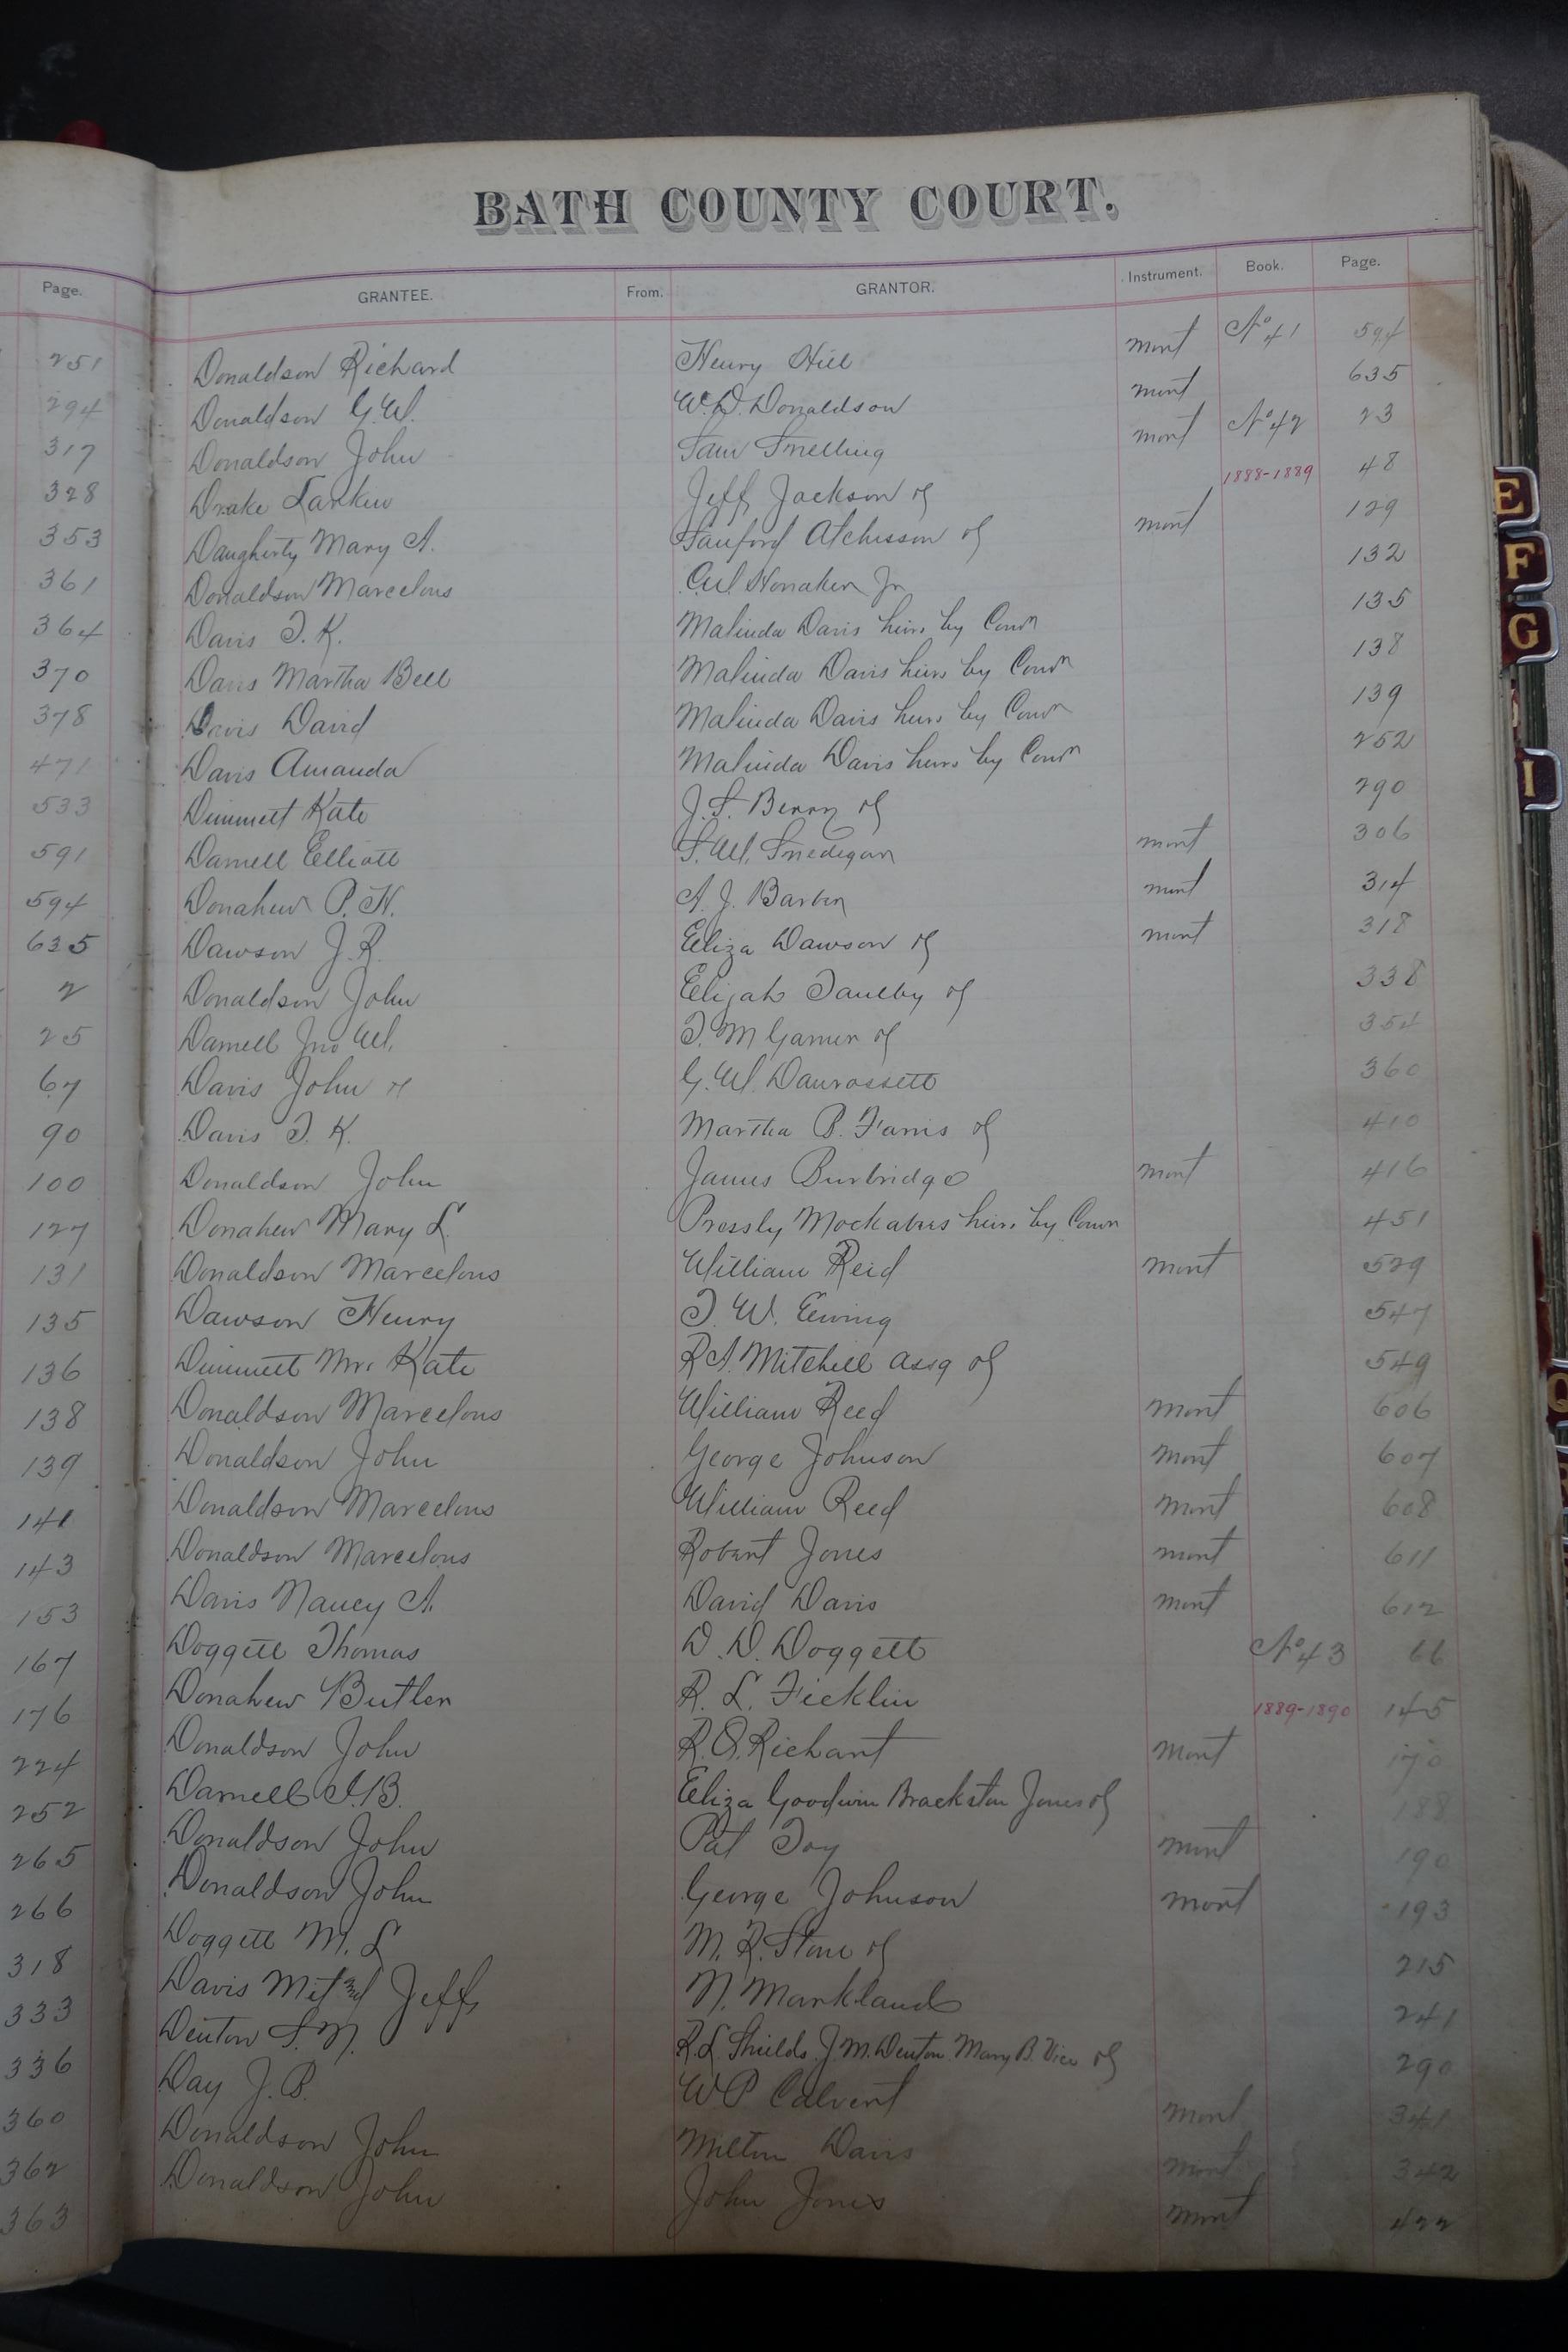 BATH COUNTY COURT.
Page. GRANTEE. From. GRANTOR. Instrument. Book. Page.
251 Donaldson Richard Henry Hill mort No 41 594
294 Donaldson G.W. W.D. Donaldson mort 635
317 Donaldson John Sam Snelling mort No 42 23
328 Drake Larkin Jeff Jackson of 1888-1889 48
353 Daugherty Mary A. Sanford Atchisson of mort 129
361 Donaldson Marcelous Honaker Jr 132
364 Davis T. K. Malinda Davis heirs by Comr 135
370 Davis Martha Bell Malinda Davis heirs by Comr 138
378 Davis David Malinda Davis heirs by Comr 139
471 Davis Amanda Malinda Davis heirs by Comr 252
533 Dimmett Kate J. S. Berry of 290
591 Darnell Elliott S. W. Snedegar mort 306
594 Donahew P. H. A. J. Barber mort 314
635 Dawson J. R. Eliza Dawson of mort 318
2 Donaldson John Elijah Taulby of 338
25 Darnell Jno W. T. M Garner of 354
67 Davis John of G. W. Daurossett 360
90 Davis T. K. Martha B. Farris of 410
100 Donaldson John James Burbridge mort 416
127 Donahew Mary L. Pressly Mockabees heirs by Comr 451
131 Donaldson Marcelous William Reid mort 529
135 Dawson Henry T. W. Ewing 547
136 Dimmett Mrs Kate R A. Mitchell assg of 549
138 Donaldson Marcelous William Reed mort 606
139 Donaldson John George Johnson mort 607
141 Donaldson Marcelous William Reed mort 608
143 Donaldson Marcelous Robert Jones mort 611
153 Davis Nancy A. David Davis mort 612
167 Doggett Thomas D. D. Doggett No 43 66
176 Donahew Butler R. L. Ficklin 1889-1890 145
224 Donaldson John R. O. Richart mort 170
252 Darnell J. B. Eliza Goodwin Brackston Jones of 188
265 Donaldson John Pat Toy mort 190
266 Donaldson John George Johnson mort 193
318 Doggett M. L M. R. Stone of 215
333 Davis Jeff N. Markland 241
336 Denton S. N. R. L. Shields J. M. Denton Mary B. Vice of 290
360 Day J. B. W P Calvert mort 341
362 Donaldson John Milton Davis mort 342
363 Donaldson John John Jones mort 422
E
F
G
I